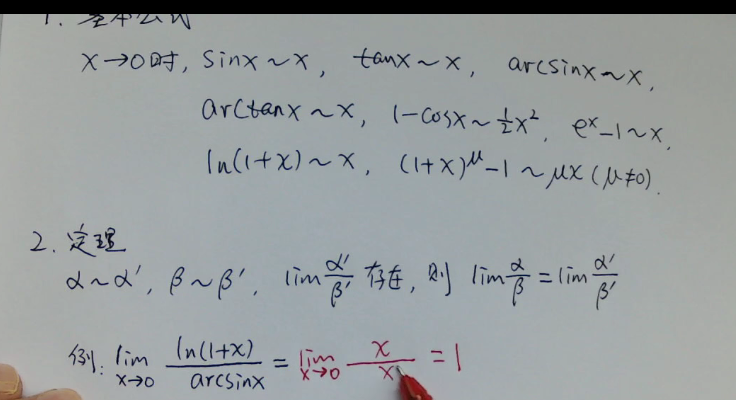 1. 基本公式
x→0时, sinx~x, tanx~x, arcsinx~x,
arctanx~x, 1-cosx~½x², eˣ-1~x,
ln(1+x)~x, (1+x)^μ-1~μx(μ≠0).
2. 定理
α~α′, β~β′, lim α′/β′ 存在, 则 lim α/β = lim α′/β′
例: lim x→0 ln(1+x)/arcsinx = lim x→0 x/x = 1